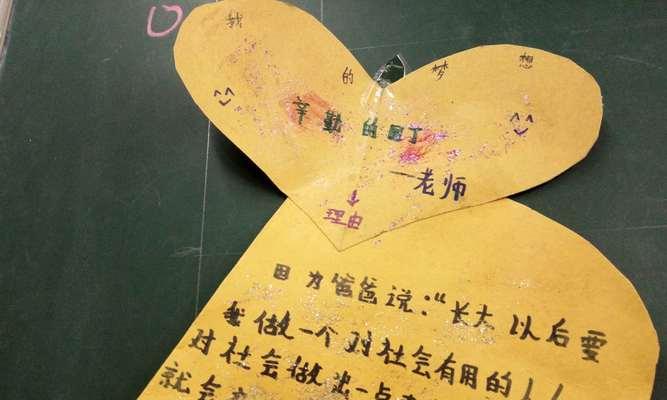 我的梦想
^^
^^
辛勤的园丁
—老师
理由
因为爸爸说:“长大以后要
我做一个对社会有用的人
对社会做出一点
就会